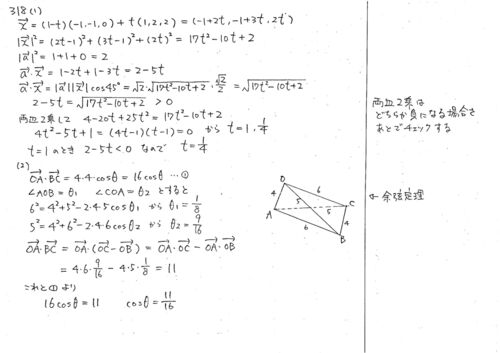 318 (1)
x⃗ = (1-t)(-1,-1,0) + t(1,2,2) = (-1+2t, -1+3t, 2t)
|x⃗|² = (2t-1)² + (3t-1)² + (2t)² = 17t²-10t+2
|a⃗|² = 1+1+0 = 2
a⃗・x⃗ = 1-2t+1-3t = 2-5t
a⃗・x⃗ = |a⃗||x⃗|cos45° = √2・√17t²-10t+2・√2/2 = √17t²-10t+2
2-5t = √17t²-10t+2 > 0
両皿2乗して 4-20t+25t² = 17t²-10t+2
4t²-5t+1 = (4t-1)(t-1) = 0 から t=1, 1/4
t=1のとき 2-5t<0 なので t=1/4
(2)
OA・BC = 4・4・cosθ = 16cosθ …①
∠AOB = θ₁ ∠COA = θ₂ とすると
6² = 4²+5²-2・4・5cosθ₁ から θ₁ = 1/8
5² = 4²+6²-2・4・6cosθ₂ から θ₂ = 9/16
OA・BC = OA・(OC-OB) = OA・OC - OA・OB
= 4・6・9/16 - 4・5・1/8 = 11
これと①より
16cosθ = 11 cosθ = 11/16
両皿2乗は
どちらかが負になる場合を
あとでチェックする
← 余弦定理
O
6
4
5
C
A
5
4
6
B